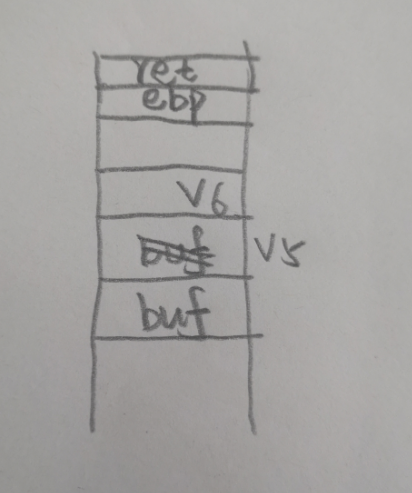 ret
ebp
V6
buf V5
buf